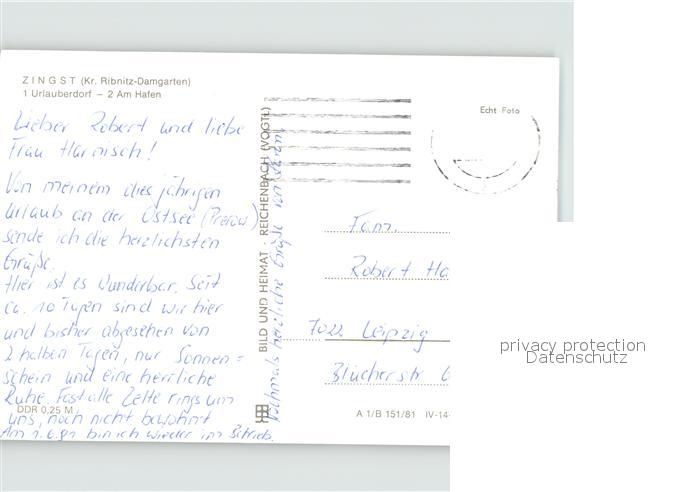 ZINGST (Kr. Ribnitz-Damgarten)
1 Urlauberdorf – 2 Am Hafen
Lieber Robert und liebe
Frau Harnisch!
Von meinem diesjährigen
Urlaub an der Ostsee (Prerow)
sende ich die herzlichsten
Grüße.
Hier ist es wunderbar. Seit
ca. 10 Tagen sind wir hier
und bisher abgesehen von
2 halben Tagen, nur Sonnen=
schein und eine herrliche
Ruhe. Fast alle Zelte rings um
uns, noch nicht bewohnt
Am 1.6.81 bin ich wieder im Betrieb.
DDR 0,25 M
BILD UND HEIMAT · REICHENBACH (VOGTL)
Nochmals herzliche Grüße von
Echt Foto
Fam.
Robert Ha
7022 Leipzig
Blücherstr
A 1/B 151/81 IV-14-
privacy protection
Datenschutz